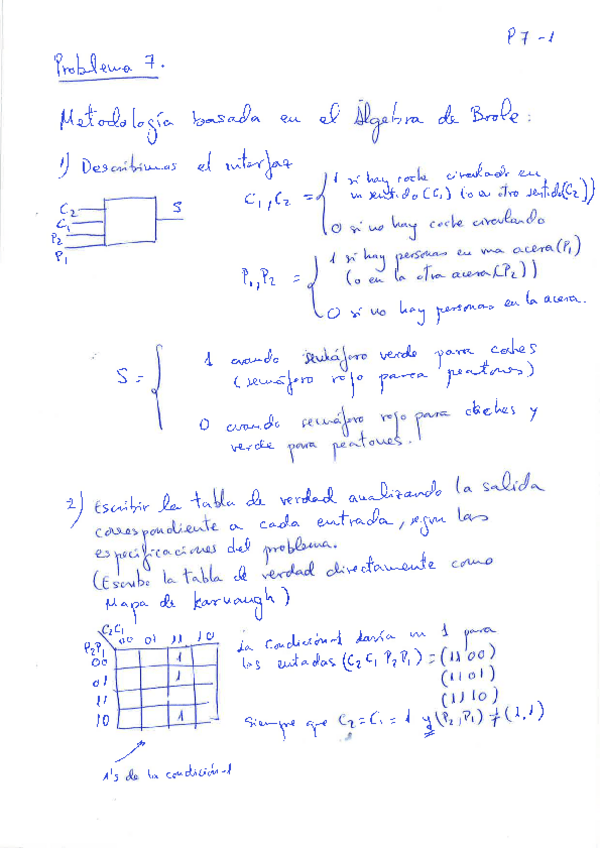 P7-1
Problema 7.
Metodología basada en el Álgebra de Boole:
1) Describimos el interfaz
C2
C1
P2
P1
S
C1, C2 =
1 si hay coche circulando en
un sentido (C1) (o en otro sentido (C2))
0 si no hay coche circulando
P1, P2 =
1 si hay personas en una acera (P1)
(o en la otra acera (P2))
0 si no hay personas en la acera.
S =
1 cuando semáforo verde para coches
(semáforo rojo para peatones)
0 cuando semáforo rojo para coches y
verde para peatones.
2) Escribir la tabla de verdad analizando la salida
correspondiente a cada entrada, según las
especificaciones del problema.
(Escribo la tabla de verdad directamente como
Mapa de Karnaugh)
C2C1
P2P1
00 01 11 10
00 1
01 1
11
10 1
La condición-1 daría un 1 para
las entradas (C2 C1 P2 P1) = (1100)
(1101)
(1110)
siempre que C2 = C1 = 1 y (P2, P1) ≠ (1,1)
1's de la condición-1